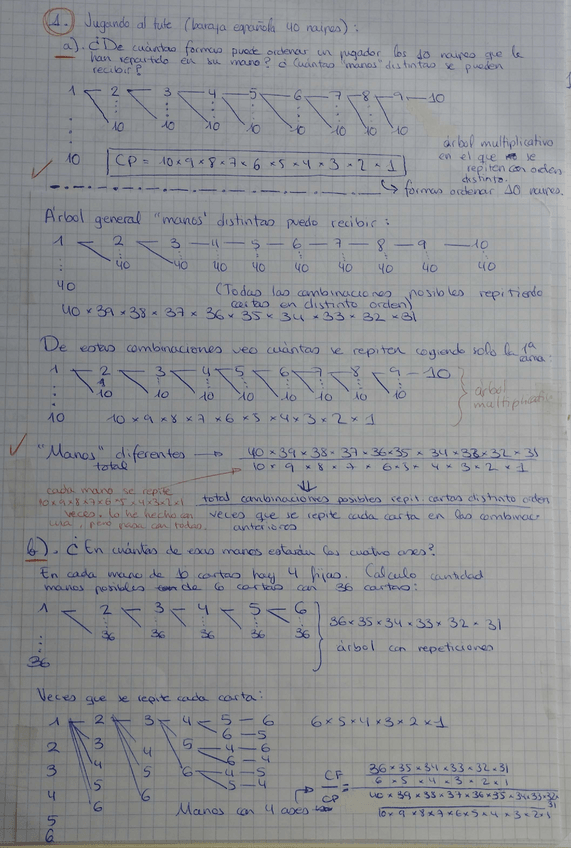 1. Jugando al tute (baraja española 40 naipes):
a). ¿De cuántas formas puede ordenar un jugador los 10 naipes que le
han repartido en su mano? ¿Cuántas "manos" distintas se pueden
recibir?
1 2 3 4 5 6 7 8 9 10
10 10 10 10 10 10 10 10
10
CP = 10×9×8×7×6×5×4×3×2×1
árbol multiplicativo
en el que se
repiten con orden
distinto.
formas ordenar 10 naipes.
Árbol general "manos" distintas puedo recibir:
1 2 3 4 5 6 7 8 9 10
40 40 40 40 40 40 40 40 40
40
(Todas las combinaciones posibles repitiendo
cartas en distinto orden)
40×39×38×37×36×35×34×33×32×31
De estas combinaciones veo cuántas se repiten cogiendo solo la 1ª
rama:
1 2 3 4 5 6 7 8 9 10
10 10 10 10 10 10 10 10
10 10×9×8×7×6×5×4×3×2×1
árbol
multiplicativo
"Manos" diferentes → 40×39×38×37×36×35×34×33×32×31
total 10×9×8×7×6×5×4×3×2×1
cada mano se repite
10×9×8×7×6×5×4×3×2×1
veces. Lo he hecho con
una, pero pasa con todas.
total combinaciones posibles repit. cartas distinto orden
veces que se repite cada carta en las combinac.
anteriores
b). ¿En cuántas de esas manos estarán los cuatro ases?
En cada mano de 10 cartas hay 4 fijas. Calculo cantidad
manos posibles de 6 cartas con 36 cartas:
1 2 3 4 5 6
36 36 36 36 36
36
36×35×34×33×32×31
árbol con repeticiones
Veces que se repite cada carta:
1 2 3 4 5 6
6 5
2 3 4 5 4 6
6 4
3 4 5 6 4 5
5 4
4 5 6
6
5
6
6×5×4×3×2×1
Manos con 4 ases
CF
CP
=
36×35×34×33×32×31
6×5×4×3×2×1
40×39×38×37×36×35×34×33×32×
31
10×9×8×7×6×5×4×3×2×1